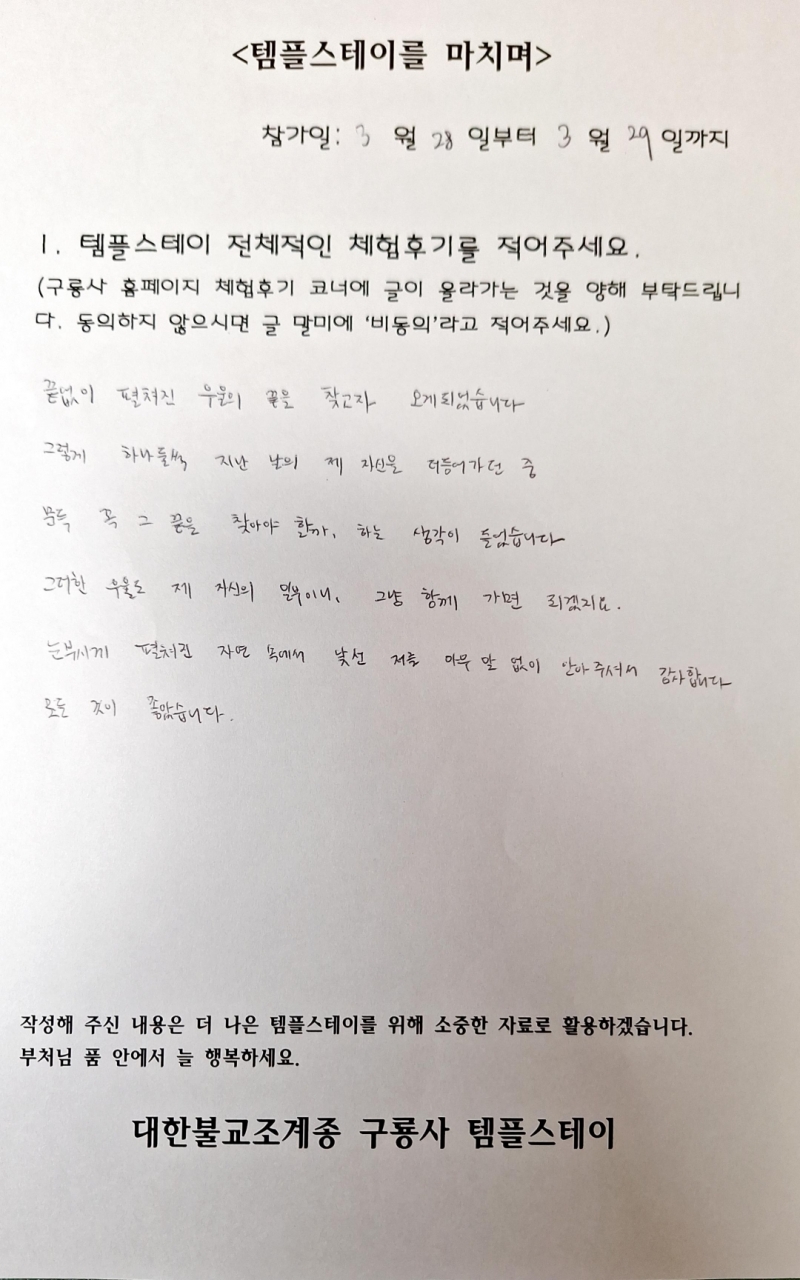 <템플스테이를 마치며>
참가일: 3 월 28 일부터 3 월 29 일까지
1. 템플스테이 전체적인 체험후기를 적어주세요.
(구룡사 홈페이지 체험후기 코너에 글이 올라가는 것을 양해 부탁드립니
다. 동의하지 않으시면 글 말미에 '비동의'라고 적어주세요.)
끝없이 펼쳐진 우울의 끝을 찾고자 오게되었습니다
그렇게 하나둘씩 지난 날의 제 자신을 더듬어가던 중
문득 꼭 그 끝을 찾아야 할까, 하는 생각이 들었습니다
그러한 우울도 제 자신의 일부이니, 그냥 함께 가면 되겠지요.
눈부시게 펼쳐진 자연 속에서 낯선 저를 아무 말 없이 안아주셔서 감사합니다
모든 것이 좋았습니다.
작성해 주신 내용은 더 나은 템플스테이를 위해 소중한 자료로 활용하겠습니다.
부처님 품 안에서 늘 행복하세요.
대한불교조계종 구룡사 템플스테이